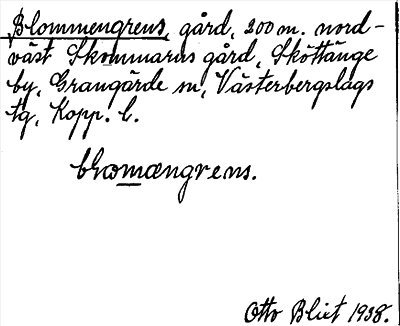 Blommengrens, gård, 200 m. nord-
väst Skommarus gård, Sköttänge
by, Grangärde sn, Västerbergslags
tg, Kopp. l.
Otto Blixt 1938.